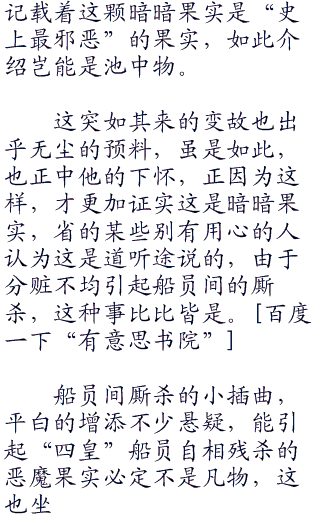 记载着这颗暗暗果实是“史
上最邪恶”的果实，如此介
绍岂能是池中物。
这突如其来的变故也出
乎无尘的预料，虽是如此，
也正中他的下怀，正因为这
样，才更加证实这是暗暗果
实，省的某些别有用心的人
认为这是道听途说的，由于
分赃不均引起船员间的厮
杀，这种事比比皆是。[百度
一下“有意思书院”]
船员间厮杀的小插曲，
平白的增添不少悬疑，能引
起“四皇”船员自相残杀的
恶魔果实必定不是凡物，这
也坐